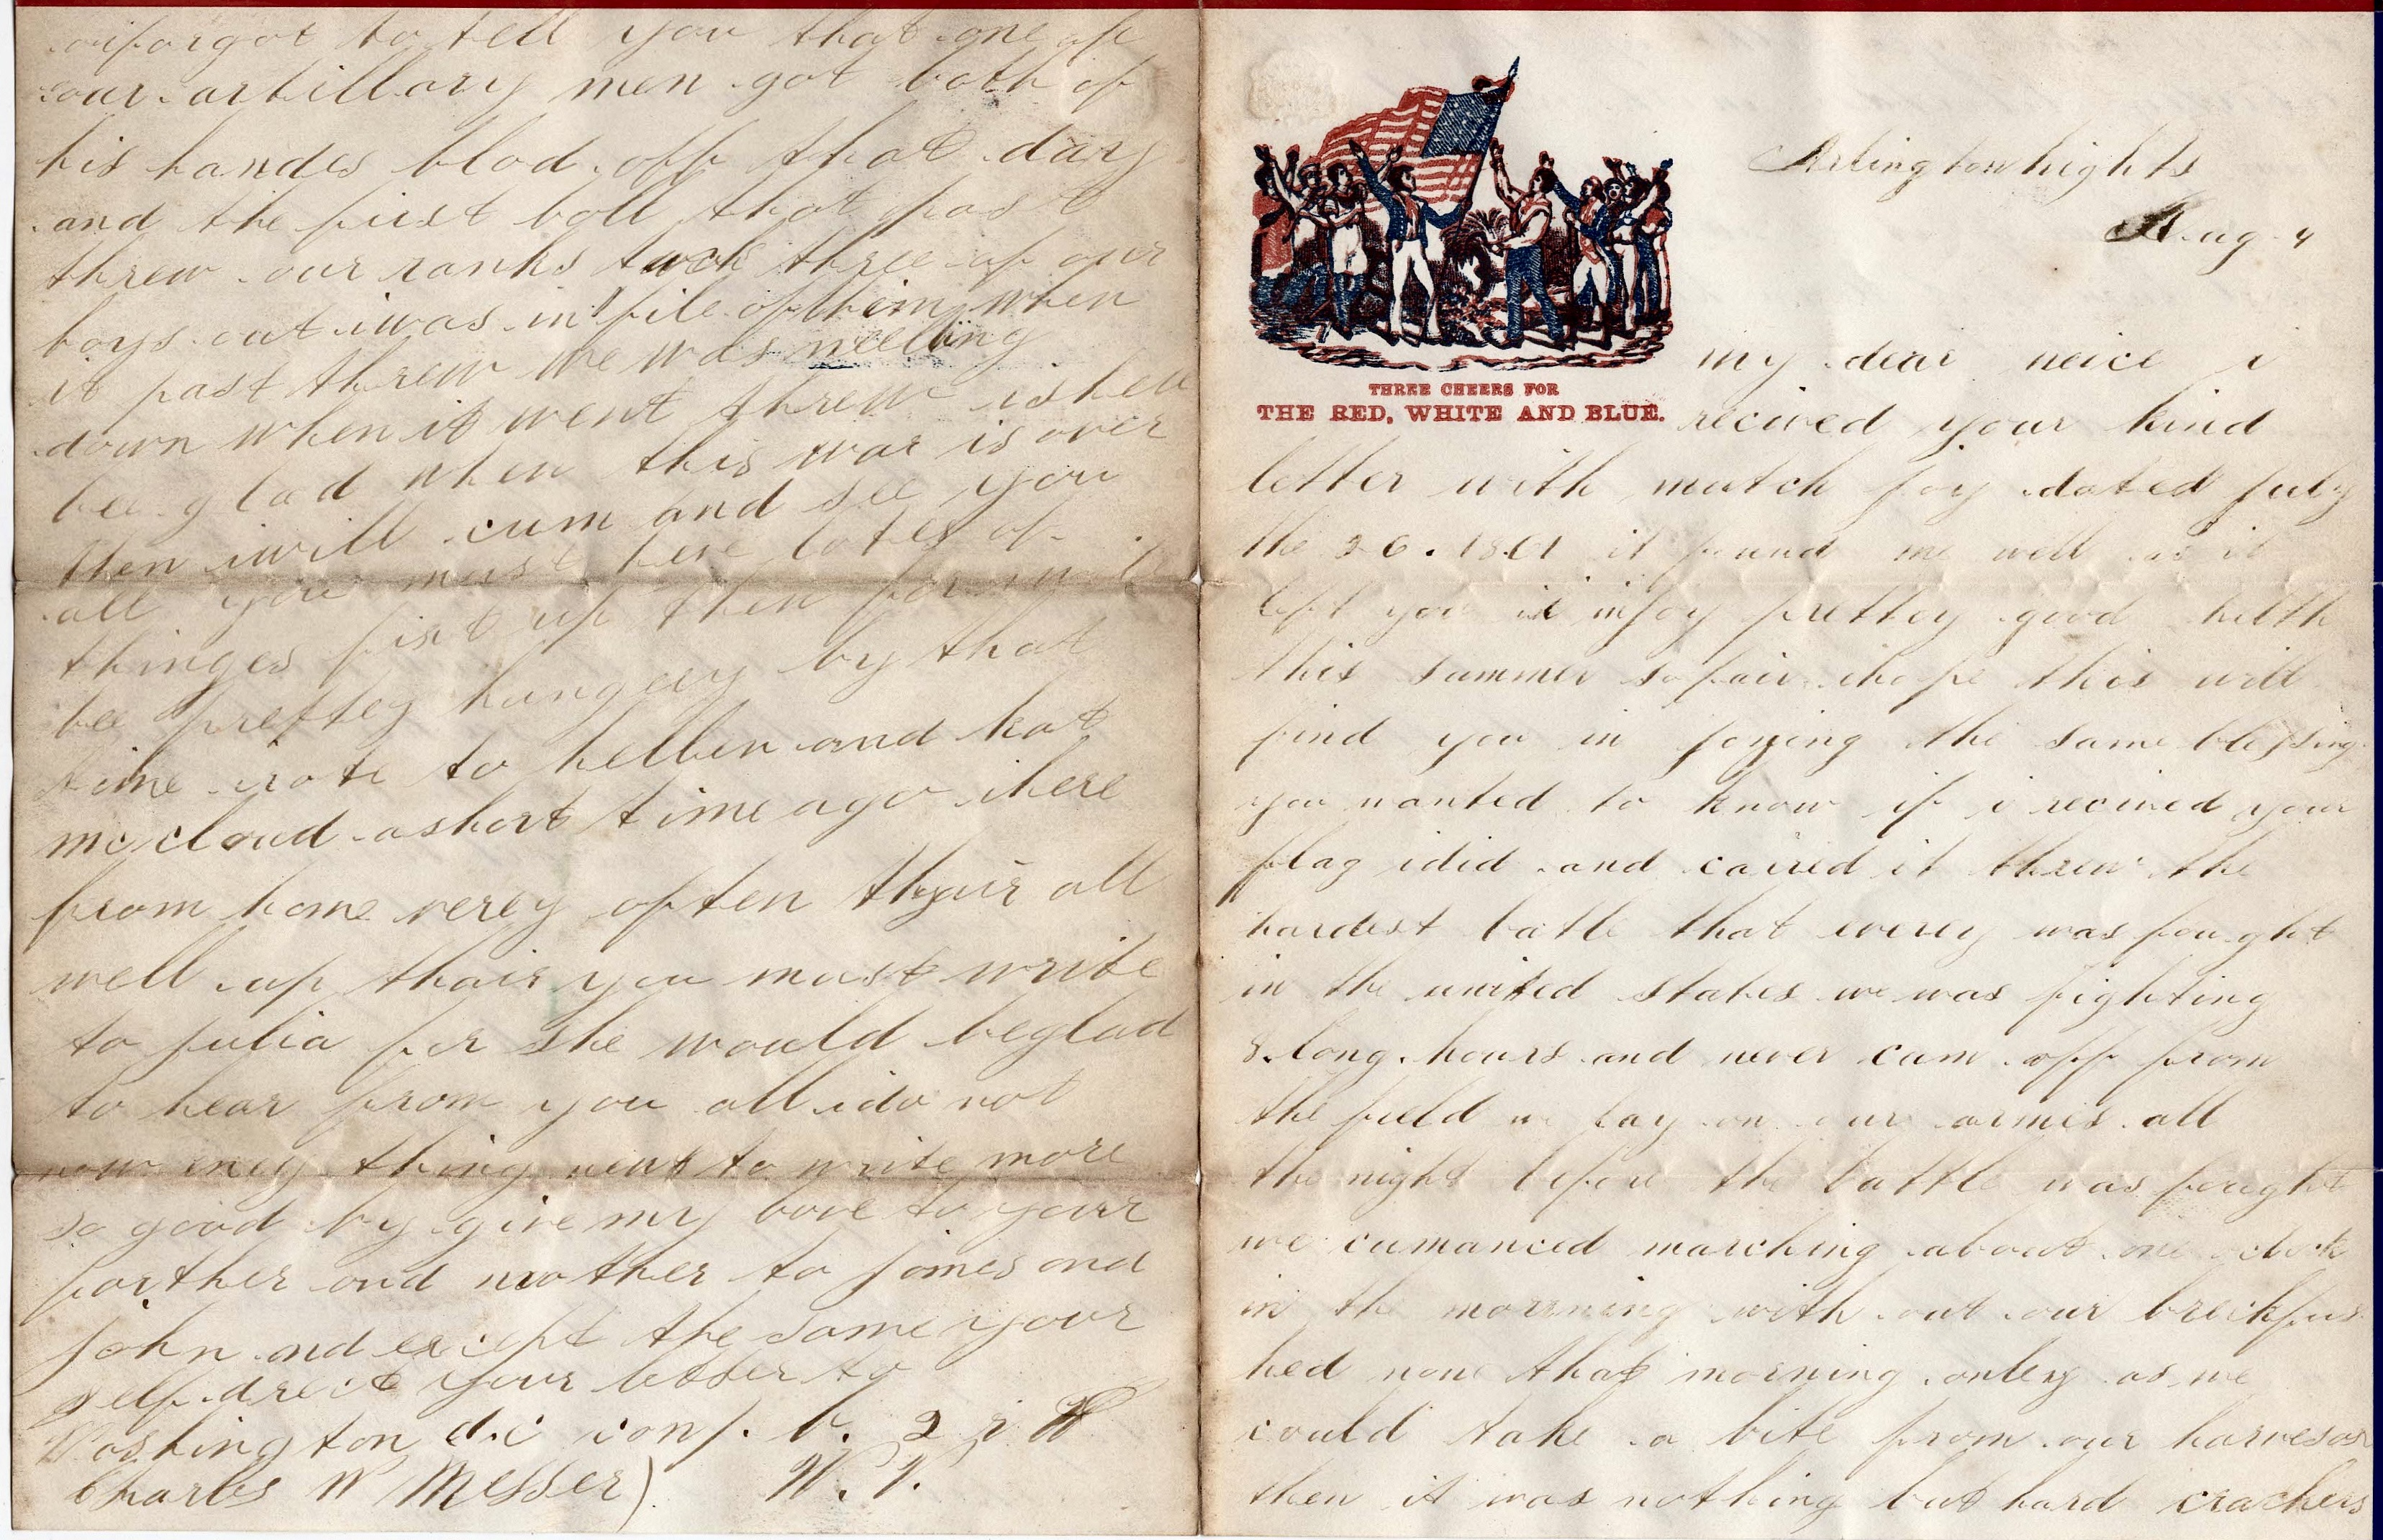 Arlington hights
Aug 4
THREE CHEERS FOR
THE RED, WHITE AND BLUE.
my dear neice i
recived your kind
letter with mutch joy dated july
the 26. 1861 it found me well as it
left you i injoy prettey good helth
this summer so fair i hope this will
find you in joying the same blessing
you wanted to know if i recived your
flag i did and caired it threw the
hardest batle that everey was fought
in the united states we was fighting
8 long hours and never cum off from
the field we lay on our armes all
the night before the battle was fought
we cumanced marching about one oclock
in the morning with out our breckfus
hed none that morning onley as we
could take a bite from our harvesas
then it was nothing but hard crackers
i forgot to tell you that one of
our artillary men got both of
his handes blod off that day
and the first ball that past
threw our ranks tock three of our
boys out i was in file of him when
it past threw we was neelling
down when it went threw i shell
bee glad when this war is over
then i will cum and see you
all you must heve lotes of
thinges fixt up then for
be prettey hungrey by that
time i rote to hellen and kat
mccloud a short time ago i here
from home verey often thair all
well up thair you must write
to julia for she would be glad
to hear from you all i do not
now eney thing new to write more
so good by give my love to your
farther and mother to james and
john and except the same your
self drect your letter to
Washington d.c comp. b. 2 r
Charles W Messer) N. V.